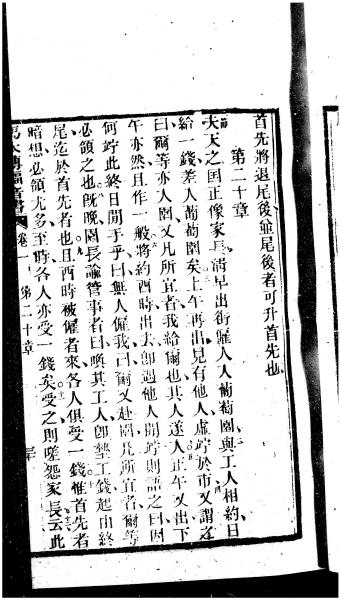 首先將退尾後並尾後者可升首先也
第二十章
夫天之国正像家長清早出街僱人入葡萄園與工人相約日
給一錢差入葡萄園矣上午再出見有他人虛竚於市又謂之
曰爾等亦入園又凡所宜者我給爾也其人遂入正午又出下
午亦然且作一般將約酉時出去卽遇他人閒竚則語之曰因
何竚此終日閒手乎曰無人僱我曰爾又赴園凡所宜者爾等
必領之也旣晚園長諭管事者曰喚其工人卽墊工錢起由終
尾迄於首先者也且酉時被僱者來各人俱受一錢惟首先者
暗想必領尤多至時各人亦受一錢矣受之則嗟怨家長云此
馬太傳福音書
卷一
第二十章